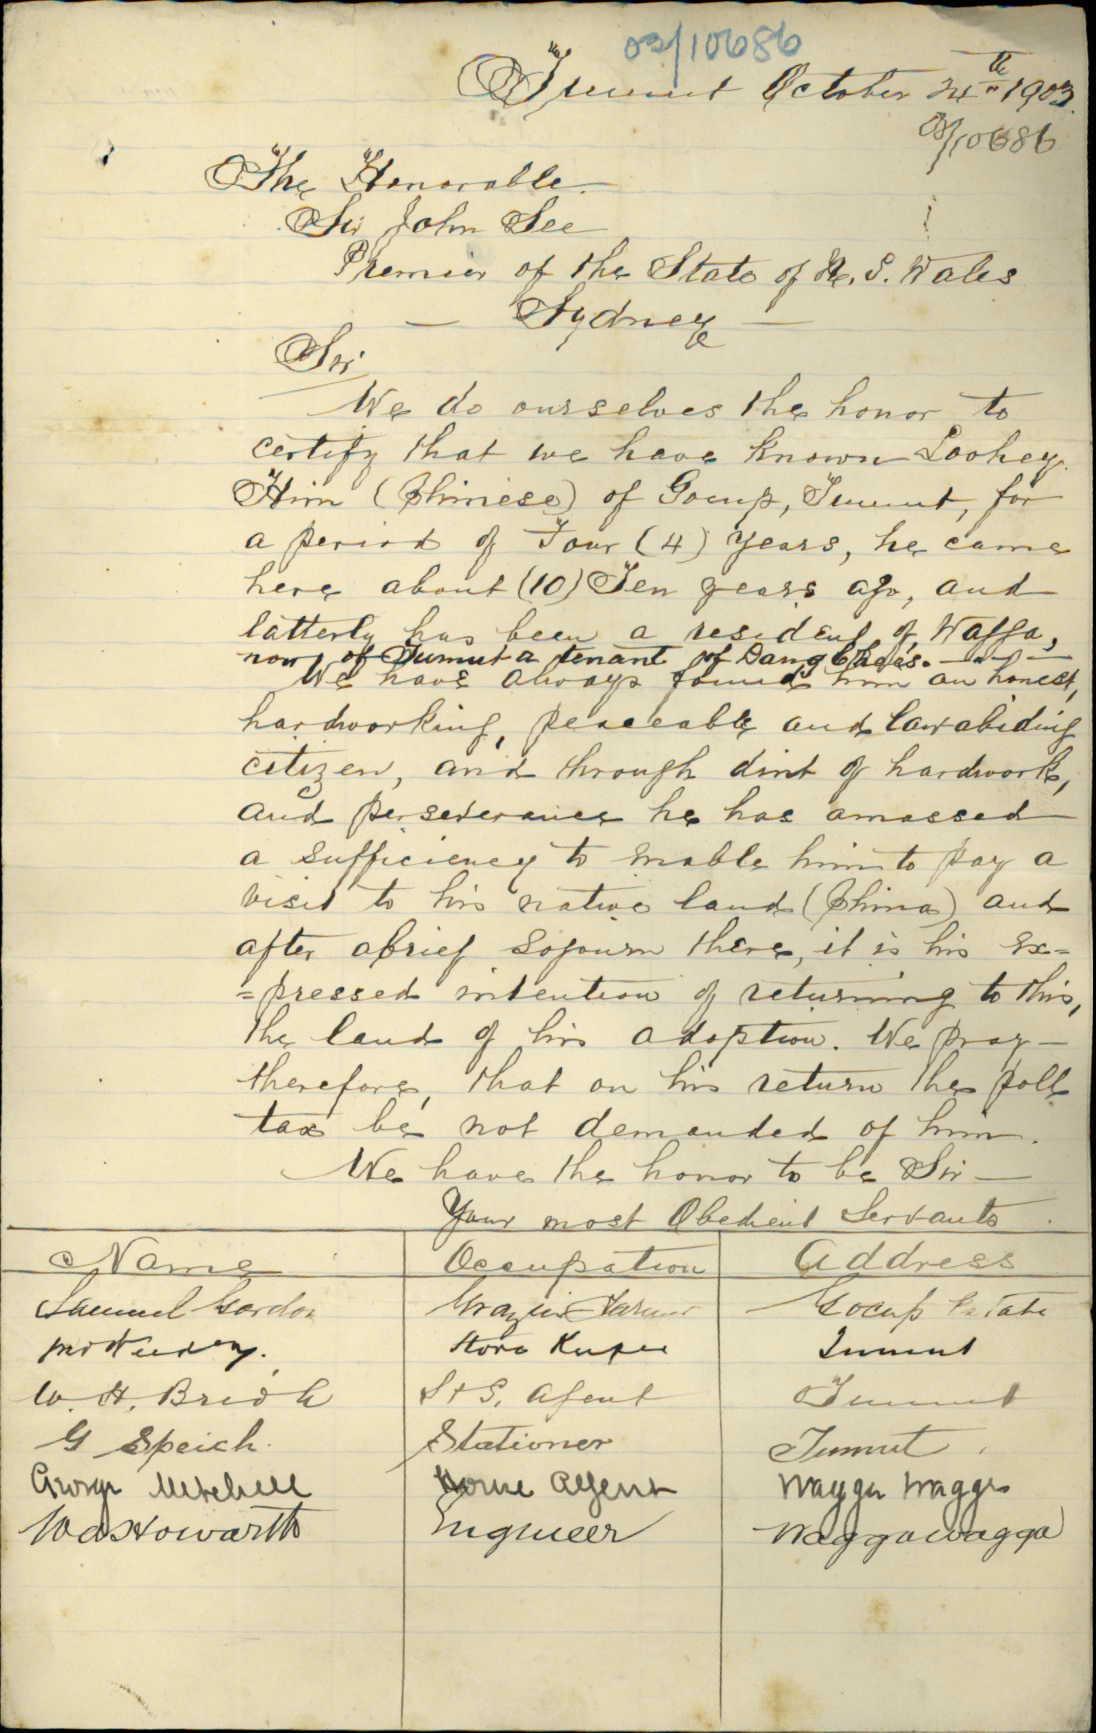 03/10686
Tumut October 24th 1903.
03/10686
The Honorable
Sir John See
Premier of the State of N. S. Wales
Sydney
Sir
We do ourselves the honor to
certify that we have known Loohey
Him (Chinese) of Gocup, Tumut, for
a period of Four (4) years, he came
here about (10) Ten years ago, and
latterly has been a resident of Wagga,
now of Tumut a tenant of Dang Chee's.
We have always found him an honest,
hardworking, peaceable and law abiding
citizen, and through dint of hardwork,
and perseverance he has amassed
a sufficiency to enable him to pay a
visit to his native land (China) and
after a brief sojourn there, it is his ex=
=pressed intention of returning to this,
the land of his adoption. We pray
therefore, that on his return the poll
tax be not demanded of him.
We have the honor to be Sir
Your most Obedient Servants
Name Occupation Address
Samuel Gordon Grazier Farmer Gocup Estate
Store Keeper Tumut
W. H. Bridle S & G. Agent Tumut
G Speich Stationer Tumut
George Mitchell Agent Wagga Wagga
Howarth Engineer Waggawagga